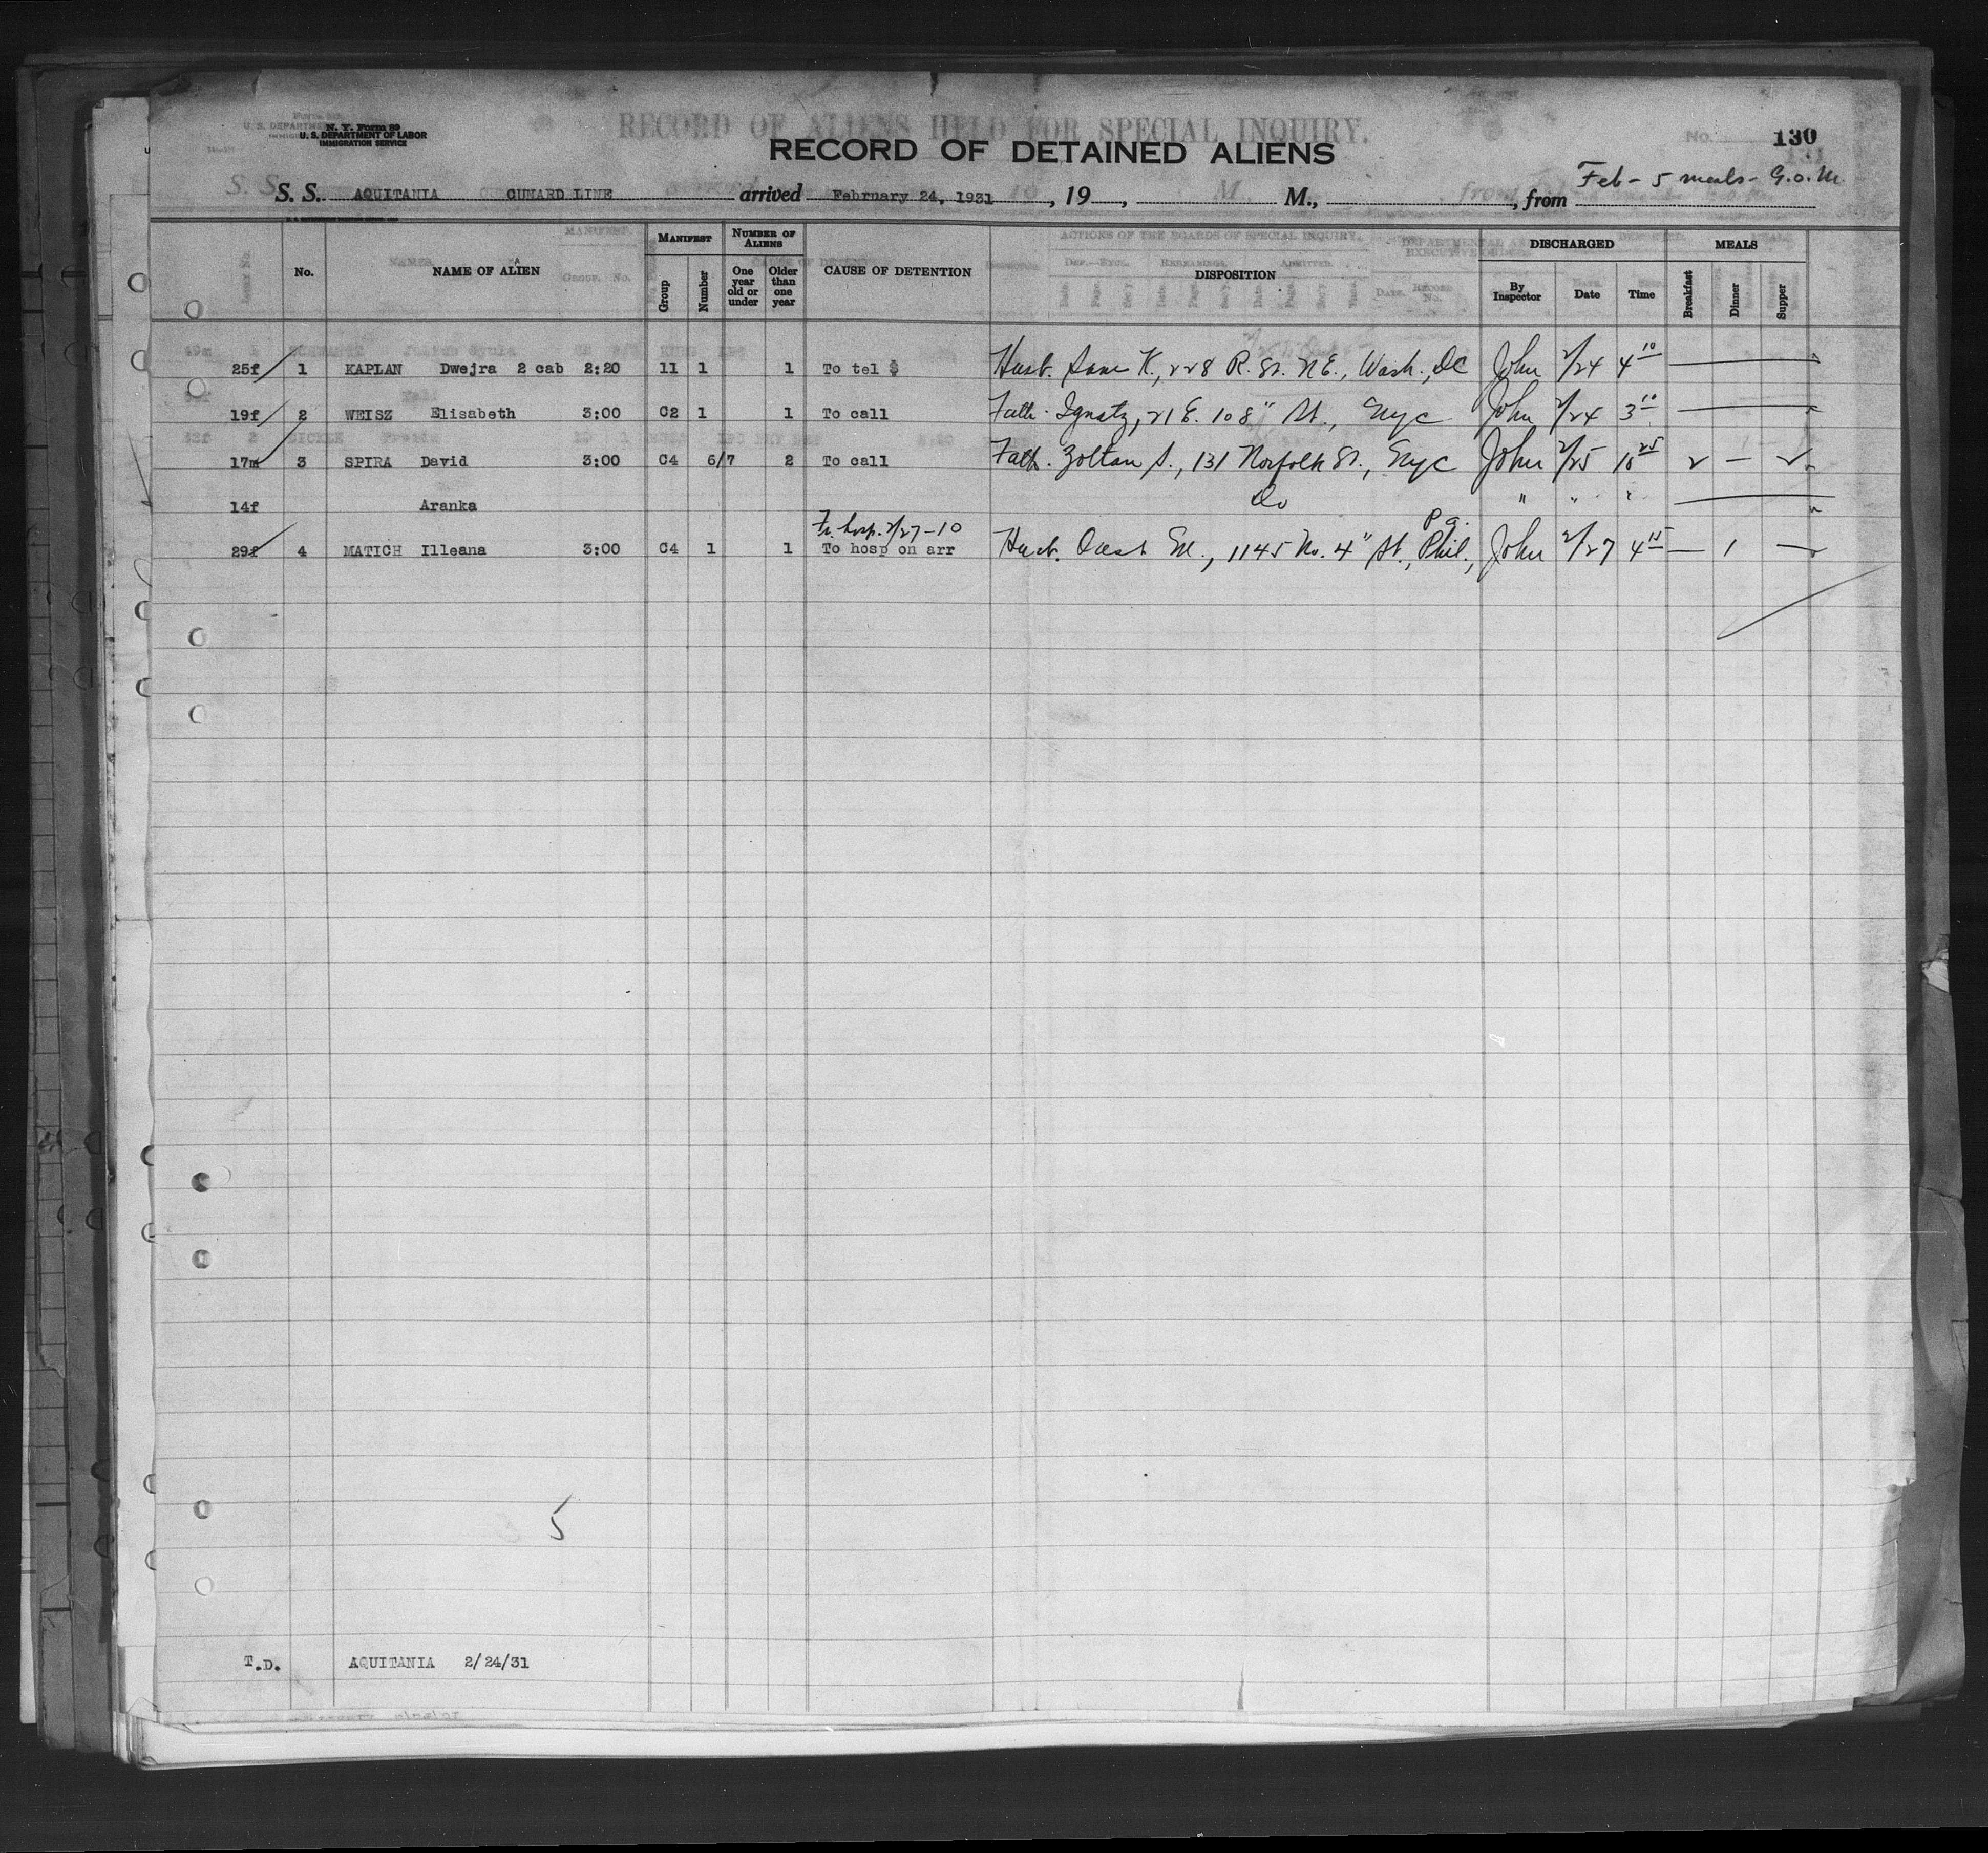 N. Y. Form 89
U. S. DEPARTMENT OF LABOR
IMMIGRATION SERVICE
RECORD OF ALIENS HELD FOR SPECIAL INQUIRY.
130
RECORD OF DETAINED ALIENS
Feb - 5 meals - G.O.M.
S. S. AQUITANIA CUNARD LINE arrived February 24, 1931, 19, M., from
No. NAME OF ALIEN MANIFEST Group Number NUMBER OF ALIENS One year old or under Older than one year CAUSE OF DETENTION DISPOSITION DISCHARGED By Inspector Date Time MEALS Breakfast Dinner Supper
25f 1 KAPLAN Dwejra 2 cab 2:20 11 1 1 To tel $ Husb. Sam K., 228 R. St. N.E., Wash., DC John 2/24 4 10
19f 2 WEISZ Elisabeth 3:00 C2 1 1 To call Fath. Ignatz, 21 E. 108" St., Nyc John 2/24 3 10
17m 3 SPIRA David 3:00 C4 6/7 2 To call Fath. Zoltan S., 131 Norfolk St., Nyc John 2/25 10 25 2 — 2
14f Aranka Do " " "
Fr. hosp. 2/27-10 Pa.
29f 4 MATICH Illeana 3:00 C4 1 1 To hosp on arr Husb. M., 1145 No. 4" St., Phil., John 2/27 4 15 — 1 —
5
T.D. AQUITANIA 2/24/31